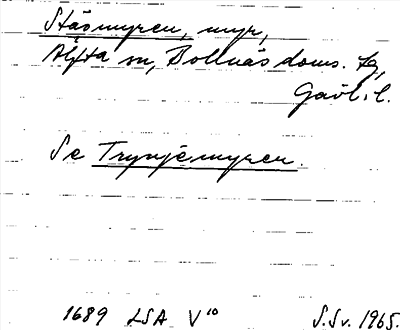 Ståsmyren, myr,
Alfta sn, Bollnäs doms. tg,
Gävl. l.
Se Trynjemyren.
1689 LSA V¹⁰ S.Sv. 1965.